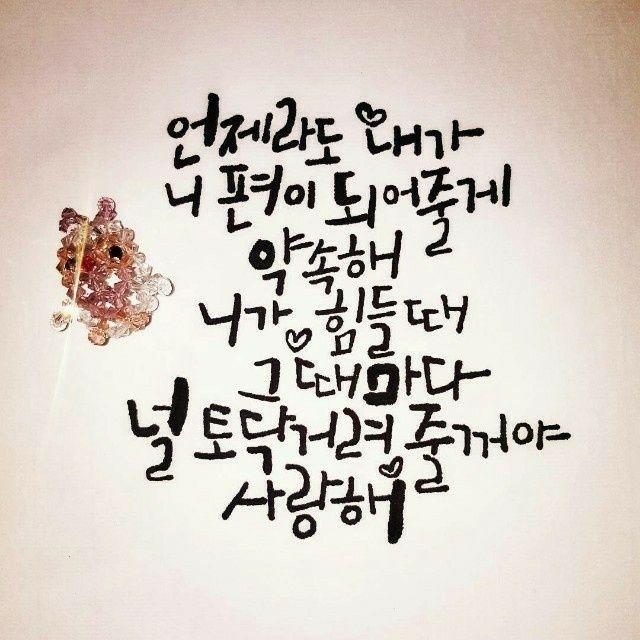 언제라도 내가
니 편이 되어줄게
약속해
니가 힘들때
그때마다
널 토닥거려줄꺼야
사랑해